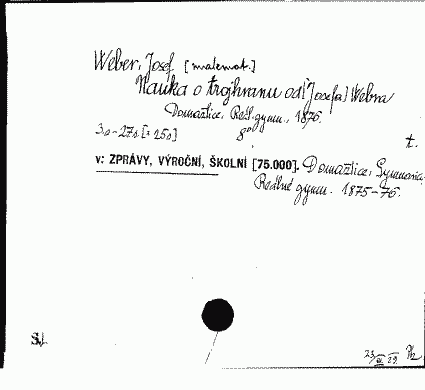 Weber, Josef [matemat.]
Nauka o trojhranu od [Josefa] Webra
Domažlice, Reál. gymn., 1876.
3s-27s [=25s] 8° t.
v: ZPRÁVY, VÝROČNÍ, ŠKOLNÍ [75.000]. Domažlice, Gymnasia.
Reálné gymn. 1875-76.
23 29